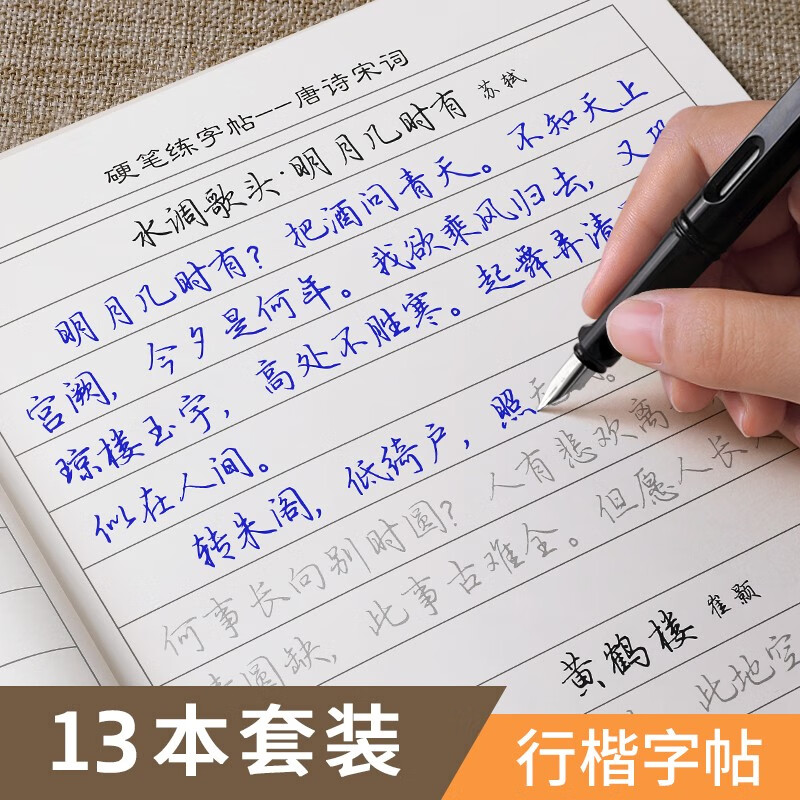 硬笔练字帖--唐诗宋词
水调歌头·明月几时有 苏轼
明月几时有？把酒问青天。不知天上
宫阙，今夕是何年。我欲乘风归去，又恐
琼楼玉宇，高处不胜寒。起舞弄清
似在人间。
转朱阁，低绮户，照无
何事长向别时圆？人有悲欢离
圆缺，此事古难全。但愿人长
黄鹤楼 崔颢
此地空
13本套装
行楷字帖